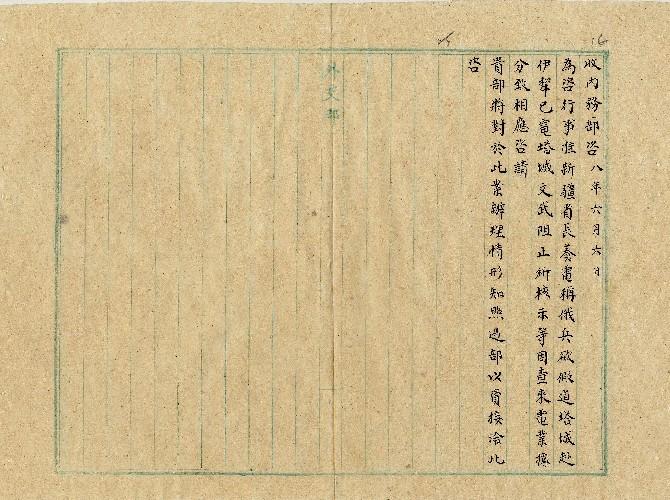 收內務部咨八年六月六日
為咨行事准新疆省長養電稱俄兵欲假道塔城赴
伊犁已電塔城文武阻止祈核示等因查來電業據
分致相應咨請
貴部將對於此案辦理情形知照過部以資接洽此
咨
外交部
16